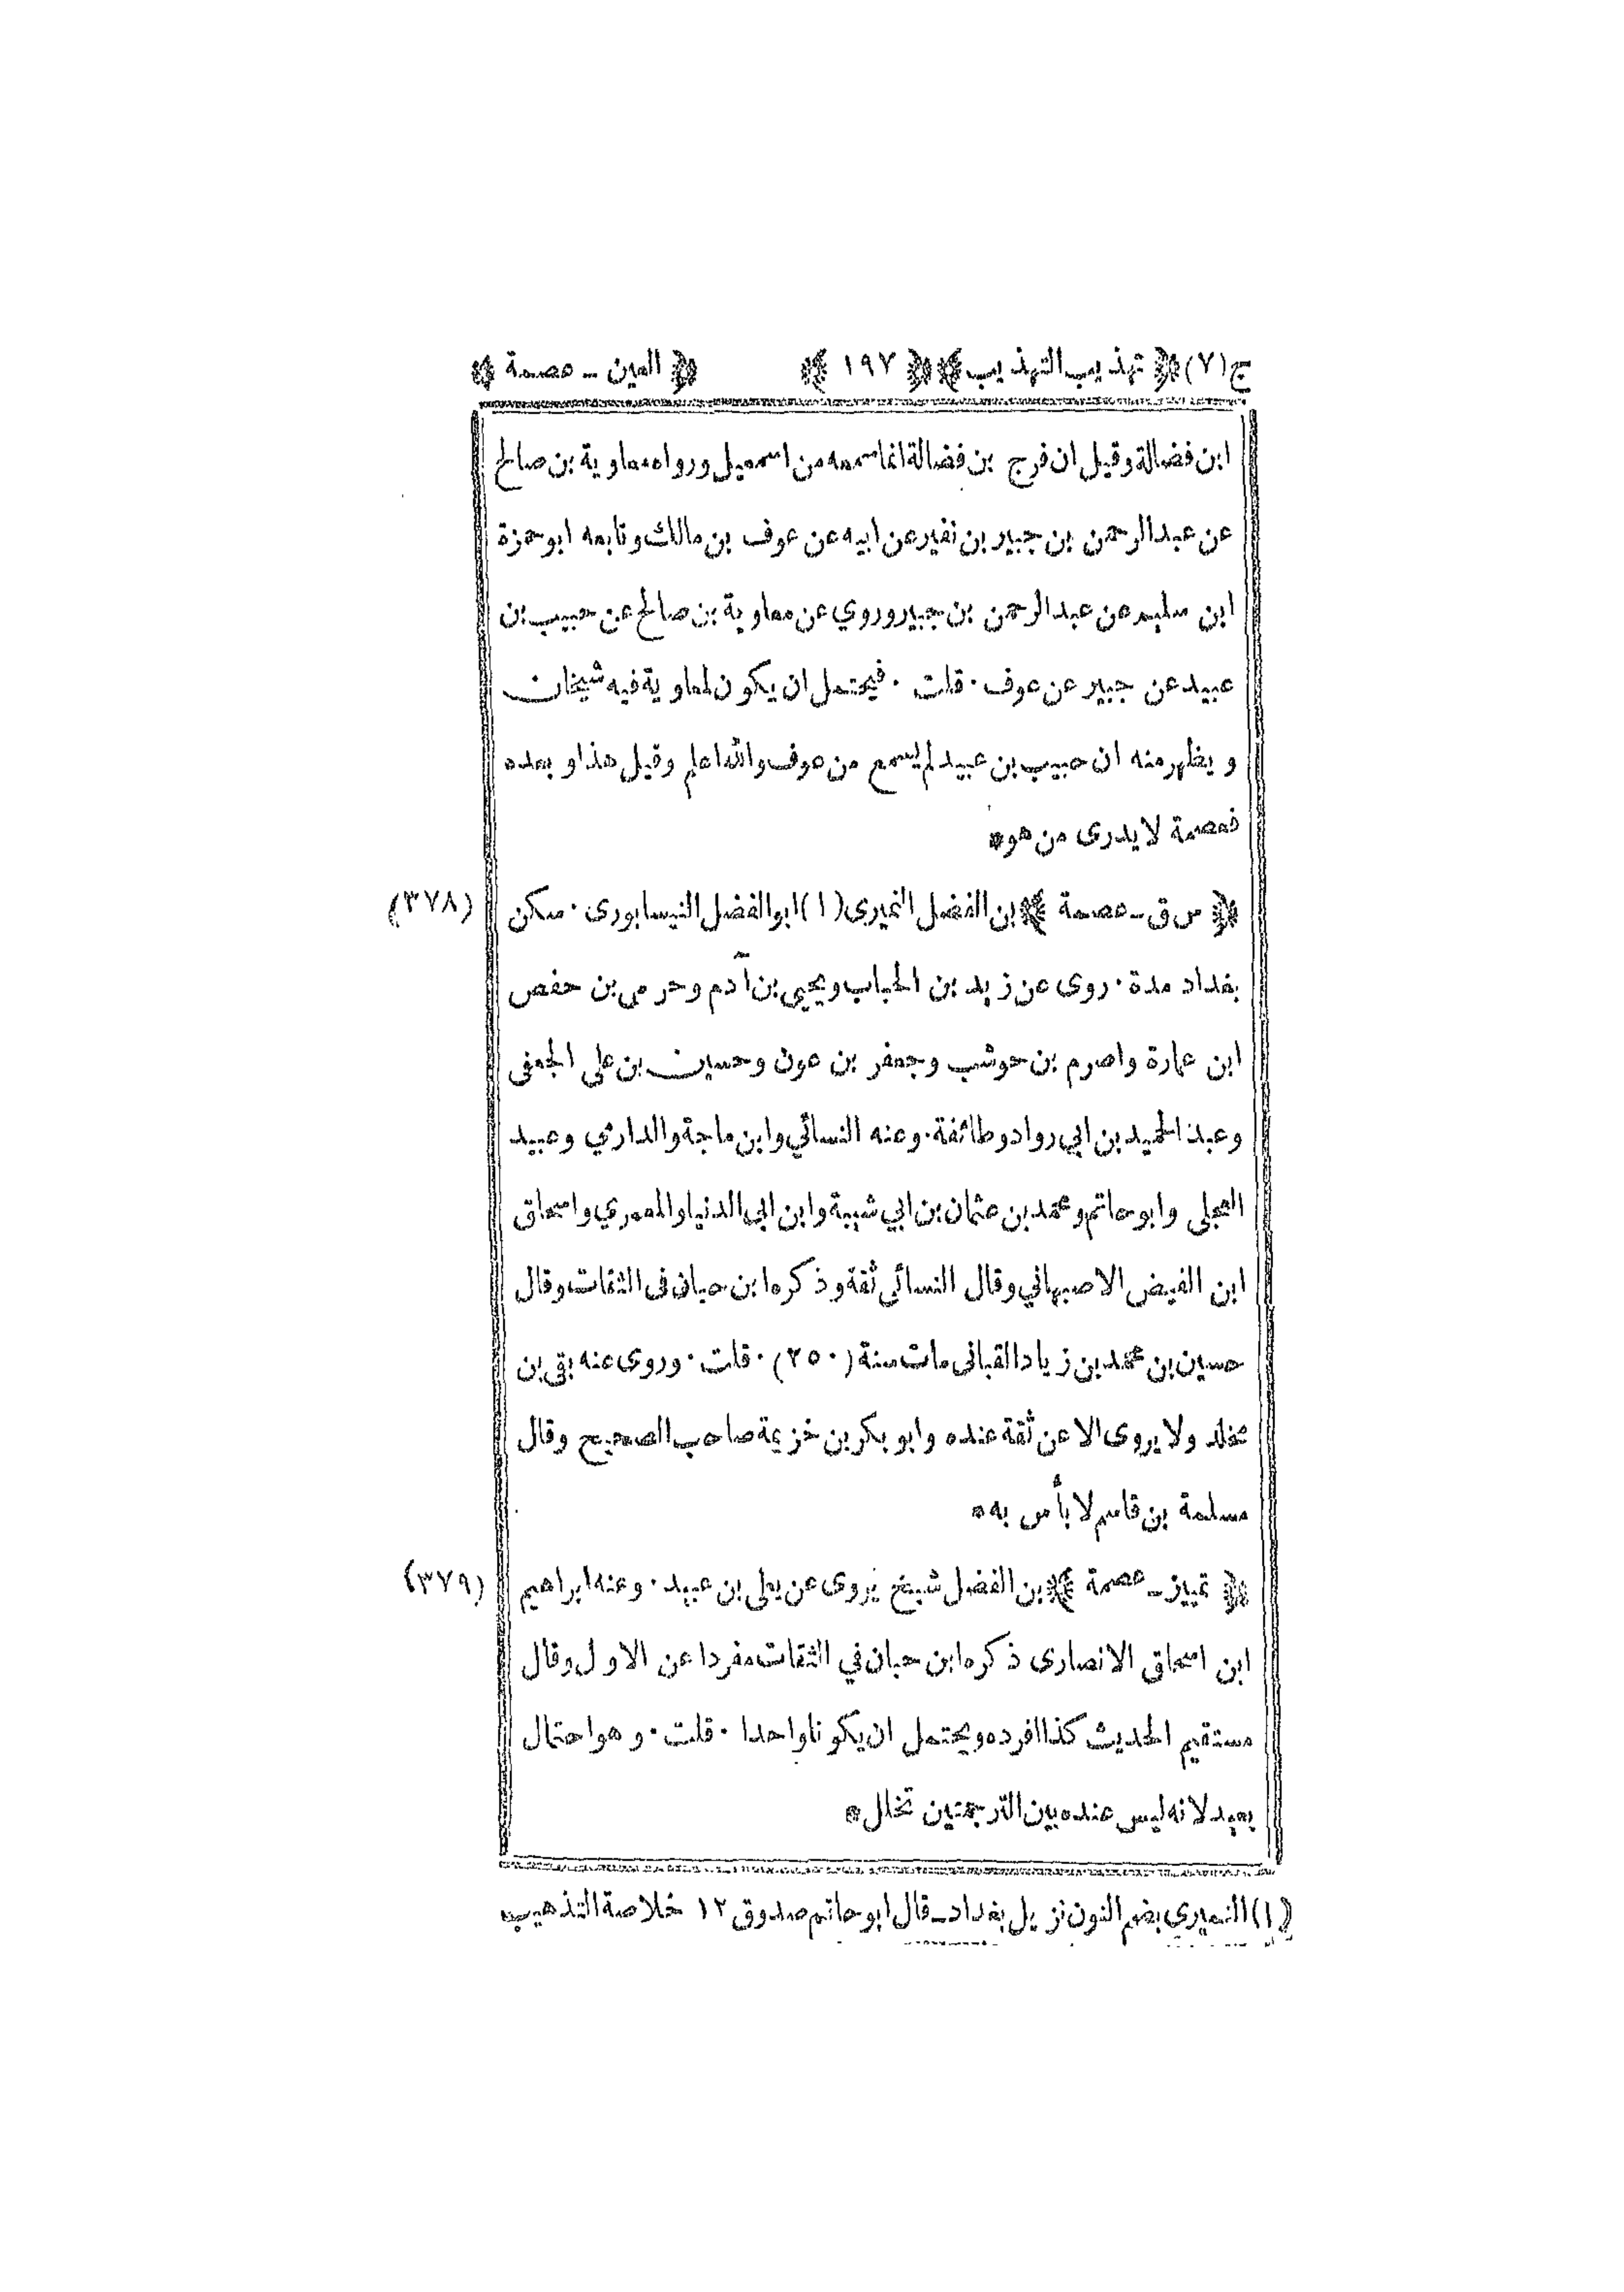 ج(٧) ﴿ تهذيب التهذيب ﴾ ﴿ ١٩٧ ﴾ ﴿ العين ـ عصمة ﴾
ابن فضالة وقيل ان فرج بن فضالة انما سمعه من اسمعيل ورواه معاوية بن صالح
عن عبدالرحمن بن جبير بن نفير عن ابيه عن عوف بن مالك وتابعه ابو حمزة
ابن سليم عن عبدالرحمن بن جبير وروي عن معاوية بن صالح عن حبيب بن
عبيد عن جبير عن عوف . قلت . فيحتمل ان يكون لمعاوية فيه شيخان
و يظهر منه ان حبيب بن عبيد لم يسمع من عوف والله اعلم وقيل هذا و بعده
فعصمة لا يدرى من هو *
﴿ س ق ـ عصمة ﴾ بن الفضل النميرى (١) ابو الفضل النيسابورى . سكن (٣٧٨)
بغداد مدة . روى عن زيد بن الحباب ويحيى بن آدم وحرمي بن حفص
ابن عمارة واصرم بن حوشب وجعفر بن عون وحسين بن على الجعفى
وعبد الحميد بن ابي رواد وطائفة . وعنه النسائي وابن ماجة والدارمي وعبيد
العجلى وابو حاتم ومحمد بن عثمان بن ابي شيبة وابن ابي الدنيا والمعمري واسحاق
ابن الفيض الاصبهاني وقال النسائي ثقة وذكره ابن حبان فى الثقات وقال
حسين بن محمد بن زياد القبانى مات سنة (٢٥٠) . قلت . وروى عنه بقى بن
مخلد ولا يروى الا عن ثقة عنده وابو بكر بن خزيمة صاحب الصحيح وقال
مسلمة بن قاسم لا بأس به *
﴿ تمييز ـ عصمة ﴾ بن الفضل شيخ يروى عن يعلى بن عبيد . وعنه ابراهيم (٣٧٩)
ابن اسحاق الانصارى ذكره ابن حبان في الثقات مفردا عن الاول وقال
مستقيم الحديث كذا افرده ويحتمل ان يكونا واحدا . قلت . و هو احتمال
بعيد لانه ليس عنده بين الترجمتين تخلل *
(١) النميري بضم النون نزيل بغداد ـ قال ابو حاتم صدوق ١٢ خلاصة التذهيب